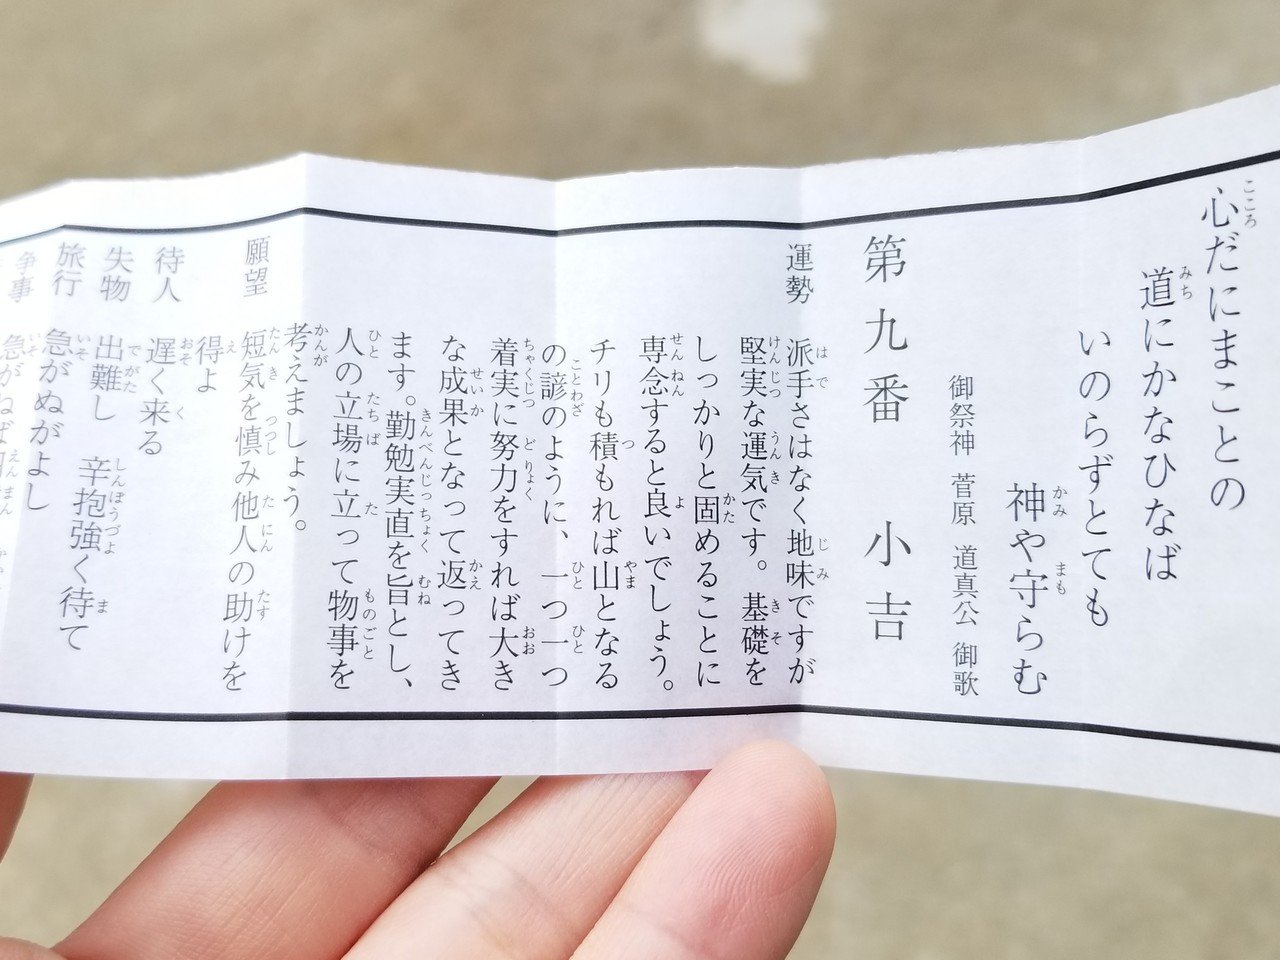 心だにまことの
道にかなひなば
いのらずとても
神や守らむ
御祭神 菅原 道真公 御歌
第九番 小吉
運勢 派手さはなく地味ですが
堅実な運気です。基礎を
しっかりと固めることに
専念すると良いでしょう。
チリも積もれば山となる
の諺のように、一つ一つ
着実に努力をすれば大き
な成果となって返ってき
ます。勤勉実直を旨とし、
人の立場に立って物事を
考えましょう。
願望 短気を慎み他人の助けを
得よ
待人 遅く来る
失物 出難し 辛抱強く待て
旅行 急がぬがよし
争事 急がねば